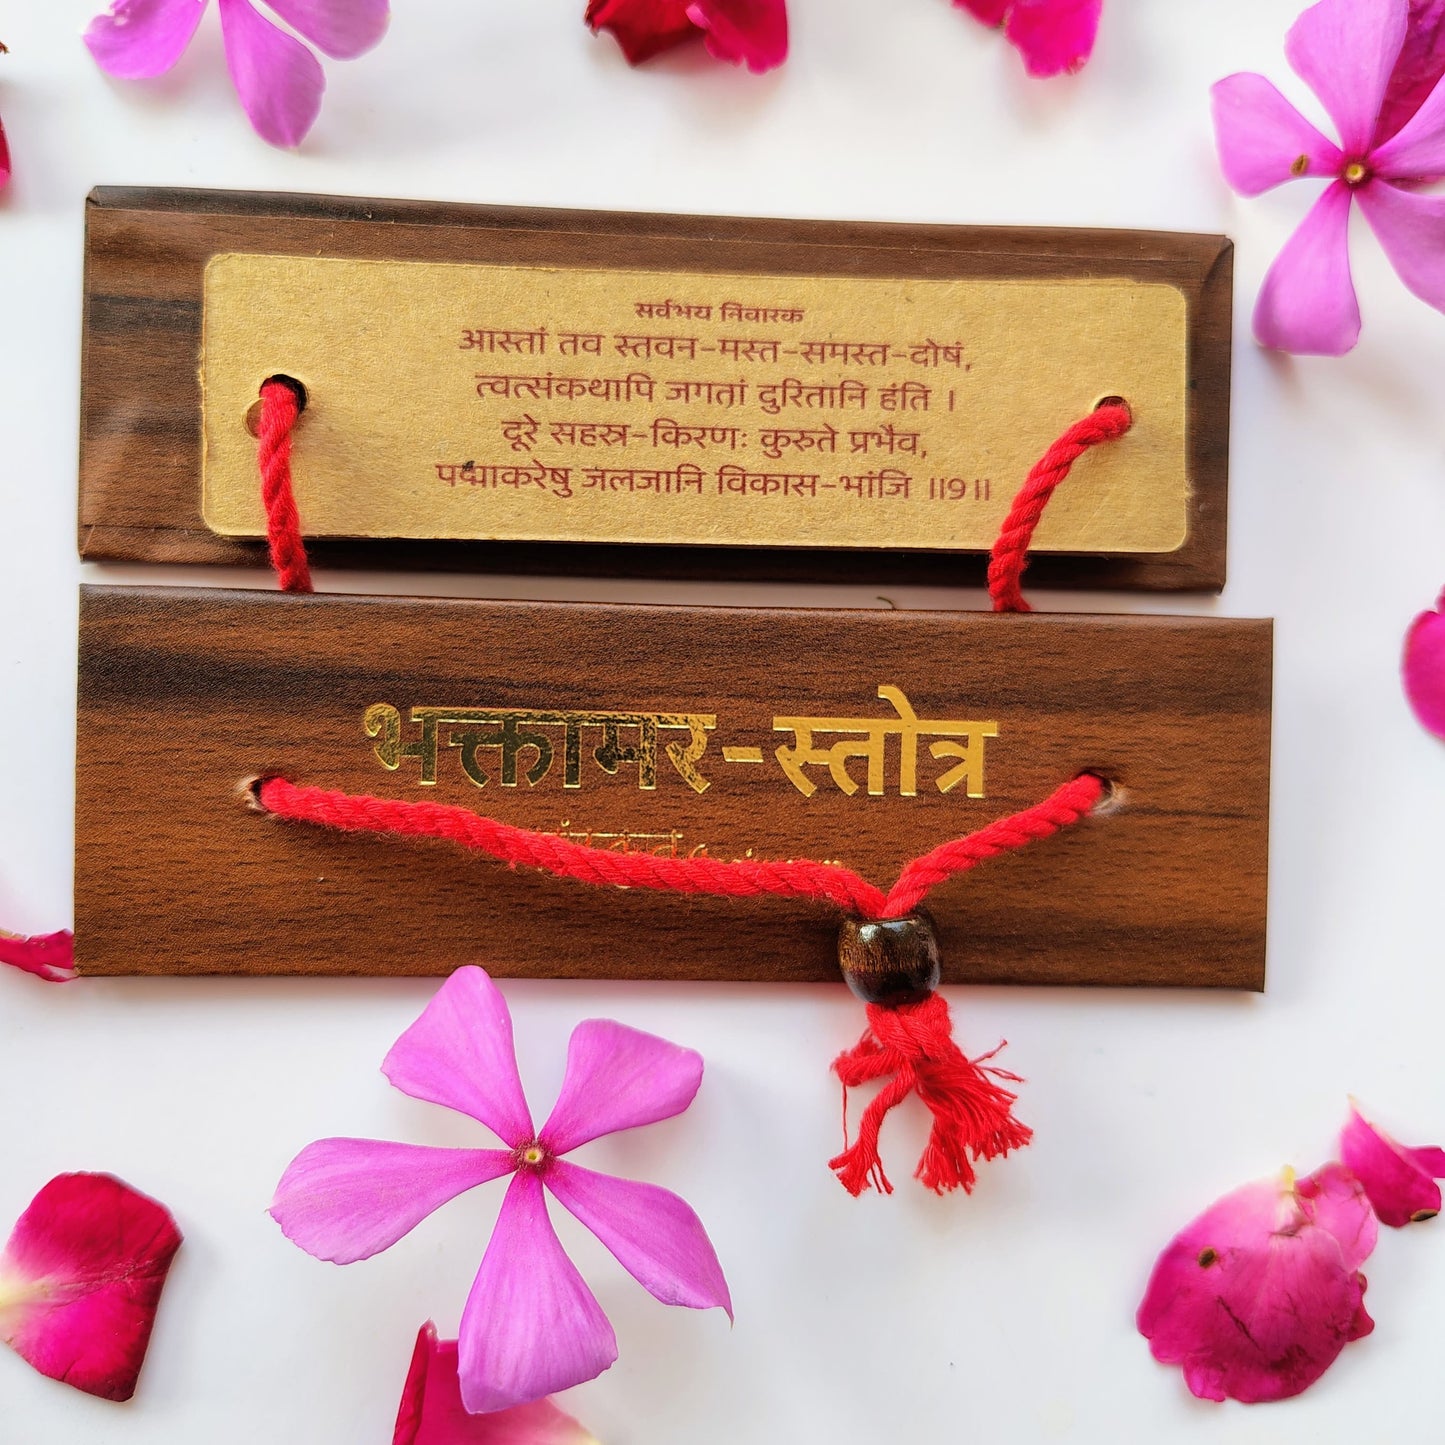 सर्वभय निवारक
आस्तां तव स्तवन-मस्त-समस्त-दोषं,
त्वत्संकथापि जगतां दुरितानि हंति ।
दूरे सहस्र-किरणः कुरुते प्रभैव,
पद्माकरेषु जलजानि विकास-भांजि ॥9॥
भक्तामर-स्तोत्र